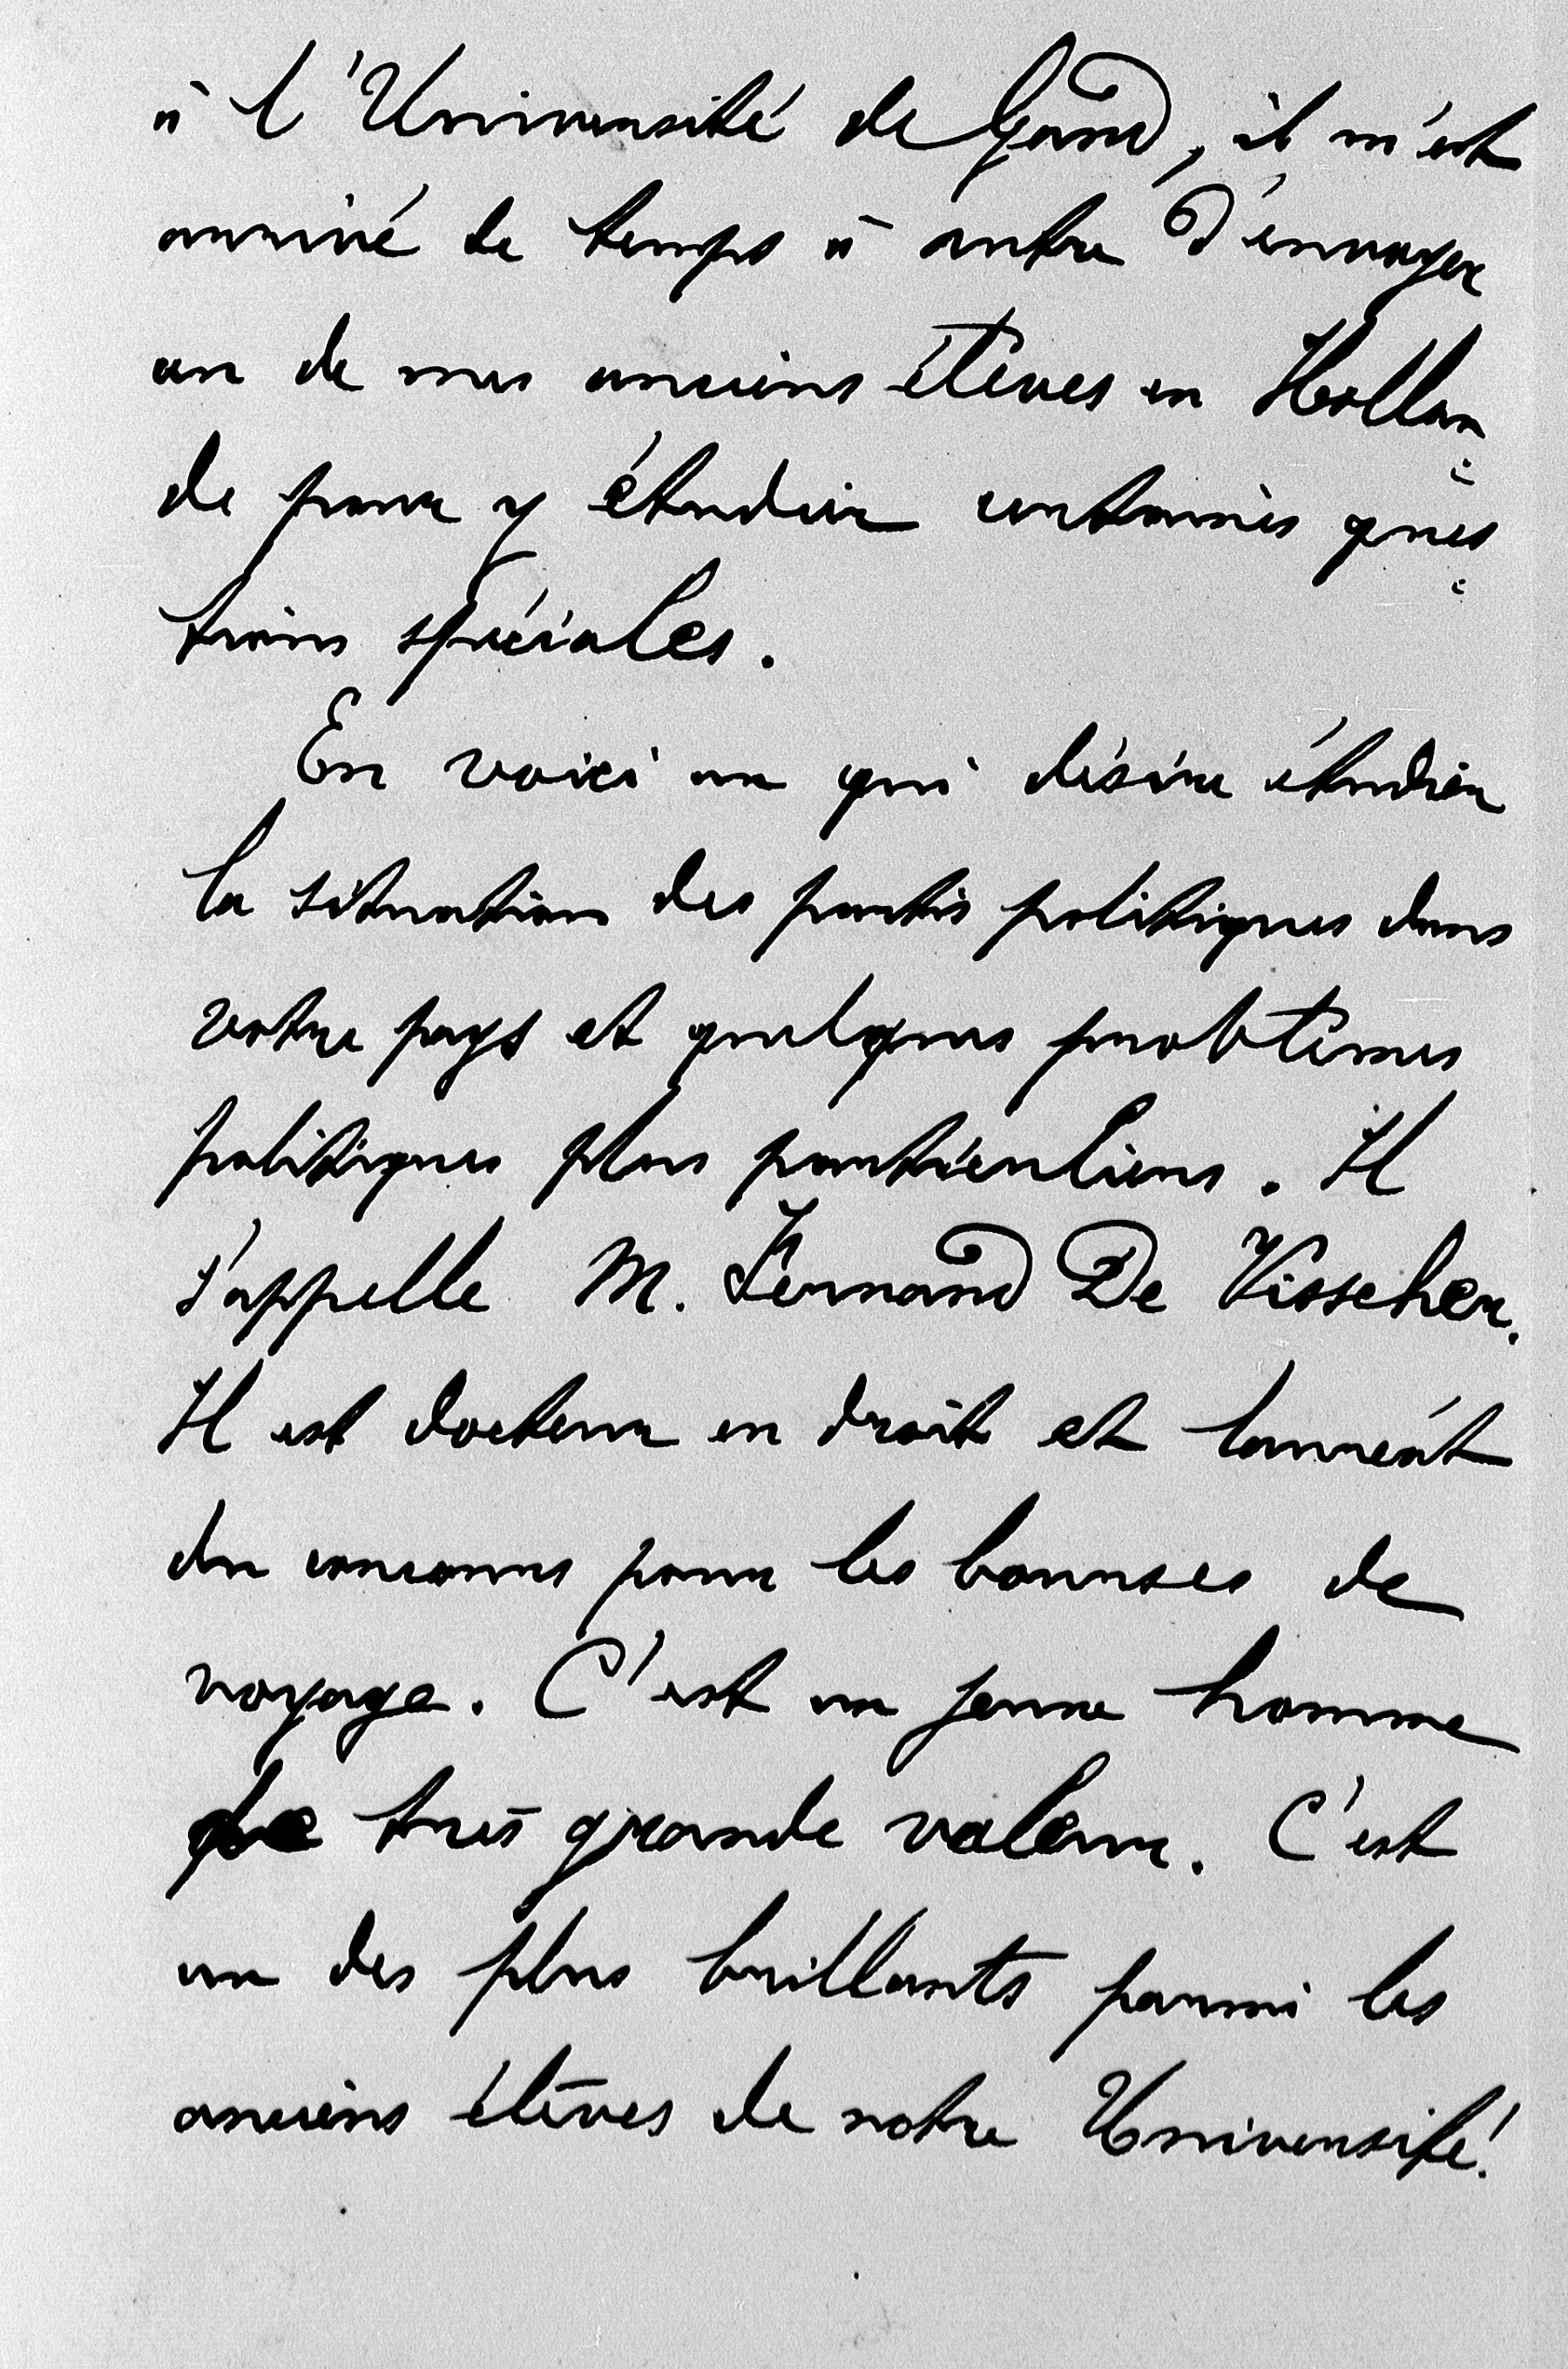 à l'Université de Gand, il m'est
arrivé de temps à autre d'envoyer
un de mes anciens élèves en Hollan=
de pour y étudier certaines ques=
tions spéciales.
En voici un qui désire étudier
la situation des partis politiques dans
votre pays et quelques problèmes
politiques plus particuliers. Il
s'appelle M. Fernand De Visscher.
Il est docteur en droit et lauréat
du concours pour les bourses de
voyage. C'est un jeune homme
de très grande valeur. C'est
un des plus brillants parmi les
anciens élèves de notre Université.